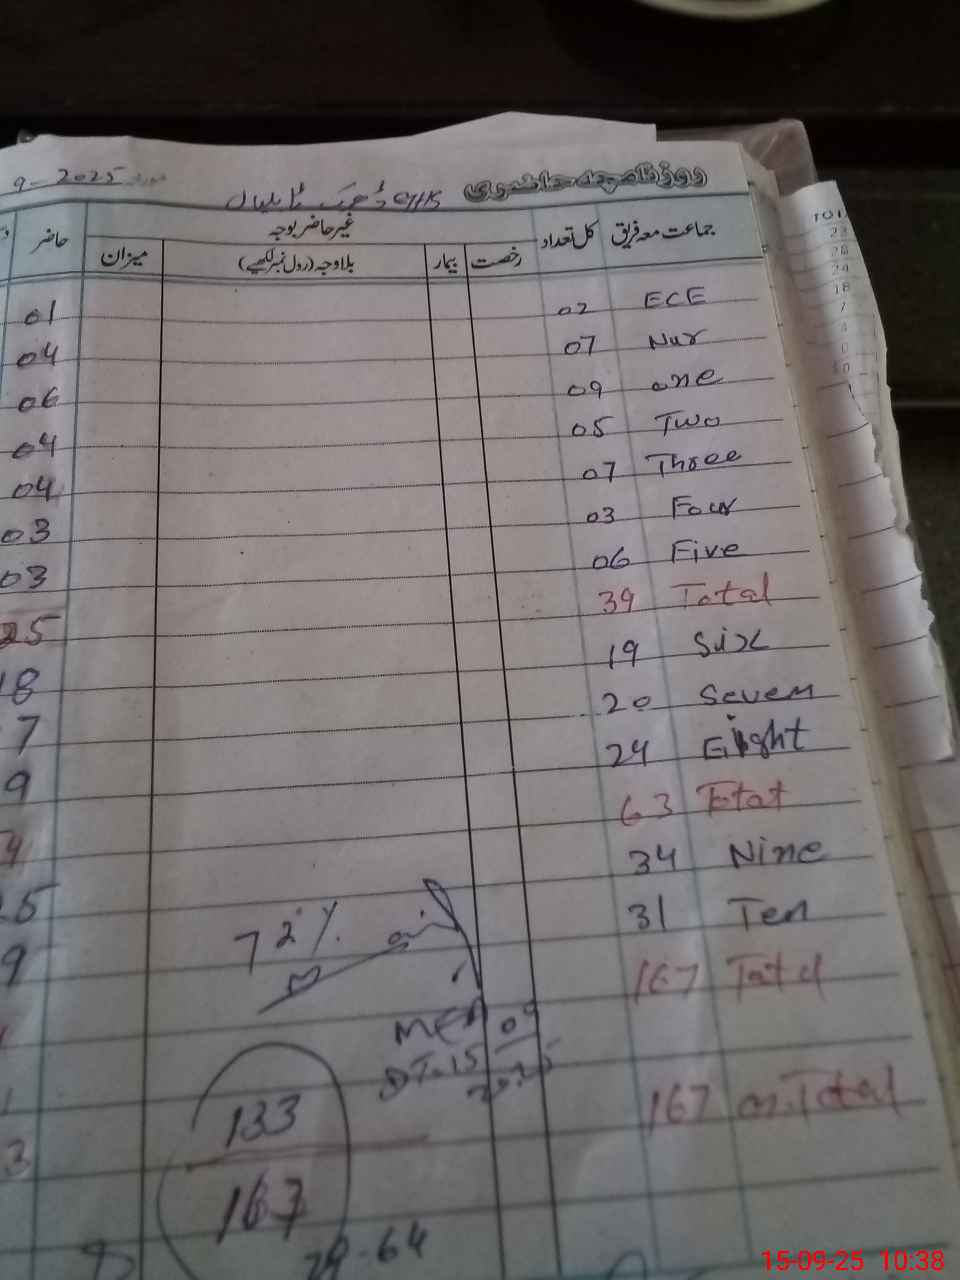 روزنامچہ حاضری
9-2025
جماعت معہ فریق کل تعداد غیر حاضر بوجہ حاضر
رخصت بیمار بلاوجہ (رول نمبر لکھیے) میزان
ECE 02 01
Nur 07 04
one 09 06
Two 05 04
Three 07 04
Four 03 03
Five 06 03
Total 39 25
Six 19 18
Seven 20 7
Eight 24 9
Total 63 4
Nine 34
Ten 31 9
72%
Total 167
MEA 09
DT. 15 2025
G.Total 167
133
167
79.64
TOT
23
20
24
18
15-09-25 10:38